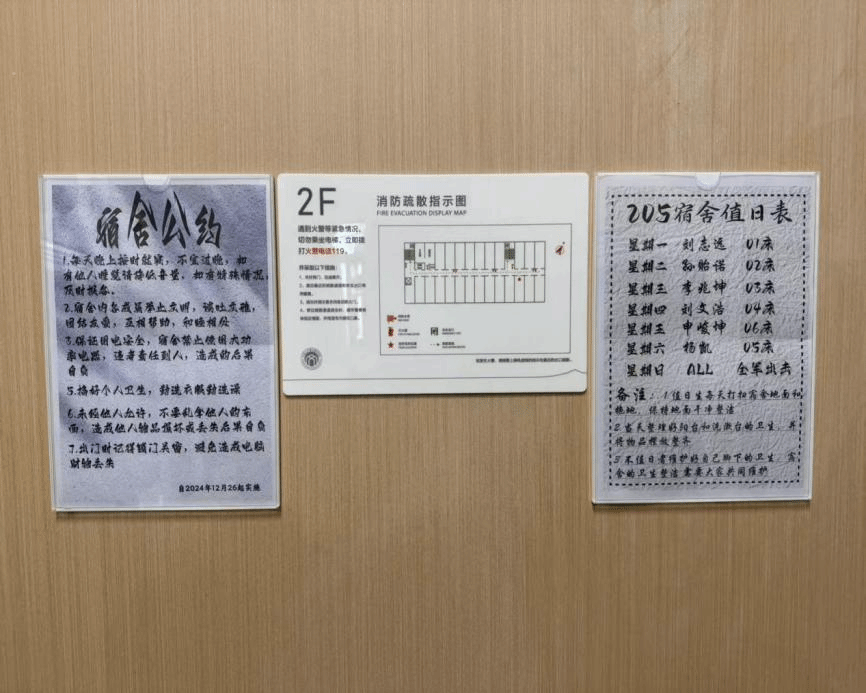 宿舍公约
1.每天晚上按时就寝,不宜过晚,如
有他人睡觉请降低音量,如有特殊情况,
及时报备。
2.宿舍内各成员举止文明,谈吐文雅,
团结友爱,互相帮助,和睦相处
3.保证用电安全,宿舍禁止使用大功
率电器,违者责任到人,造成的后果
自负
5.搞好个人卫生,勤洗衣服勤洗澡
6.未经他人允许,不要乱拿他人的东
西,造成他人物品损坏或丢失后果自负
7.出门时记得锁门关窗,避免造成电脑
财物丢失
自2024年12月26起实施
2F
遇到火警等紧急情况,
切勿乘坐电梯,立即拨
打火警电话119。
并采取以下措施:
消防疏散指示图
FIRE EVACUATION DISPLAY MAP
205宿舍值日表
星期一 刘志远 01床
星期二 孙贻诺 02床
星期三 李兆坤 03床
星期四 刘文浩 04床
星期五 申峻坤 06床
星期六 杨凯 05床
星期日 ALL 全军出击
备注:.1值日生每天打扫宿舍地面和
拖地,保持地面干净整洁
2当天整理好阳台和洗漱台的卫生,并
将物品摆放整齐
3不值日者维护好自己脚下的卫生,宿
舍的卫生整洁需要大家共同维护